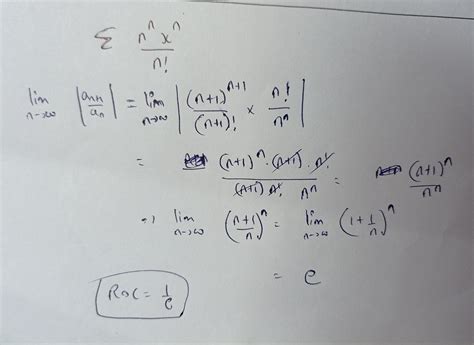 Σ n^n x^n / n!
lim n→∞ |a_{n+1} / a_n| = lim n→∞ |(n+1)^{n+1} / (n+1)! × n! / n^n|
= (n+1)^n · (n+1) · n! / (n+1) n! n^n = (n+1)^n / n^n
⇒ lim n→∞ ((n+1) / n)^n = lim n→∞ (1 + 1/n)^n
= e
ROC = 1/e